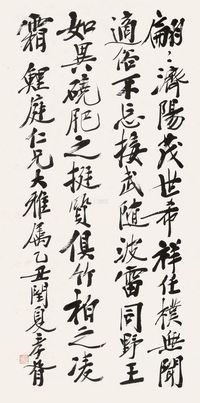 翩〻濟陽茂世希祥任樸無聞
適俗不忘接武隨波雷同野王
如異磽肥之挺賢俱竹柏之凌
霜 鯉庭仁兄大雅屬乙丑閏夏孝胥